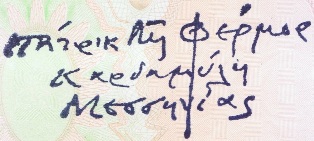 Πάτρικ Λη Φέρμορ
Καρδαμύλη
Μεσσηνίας